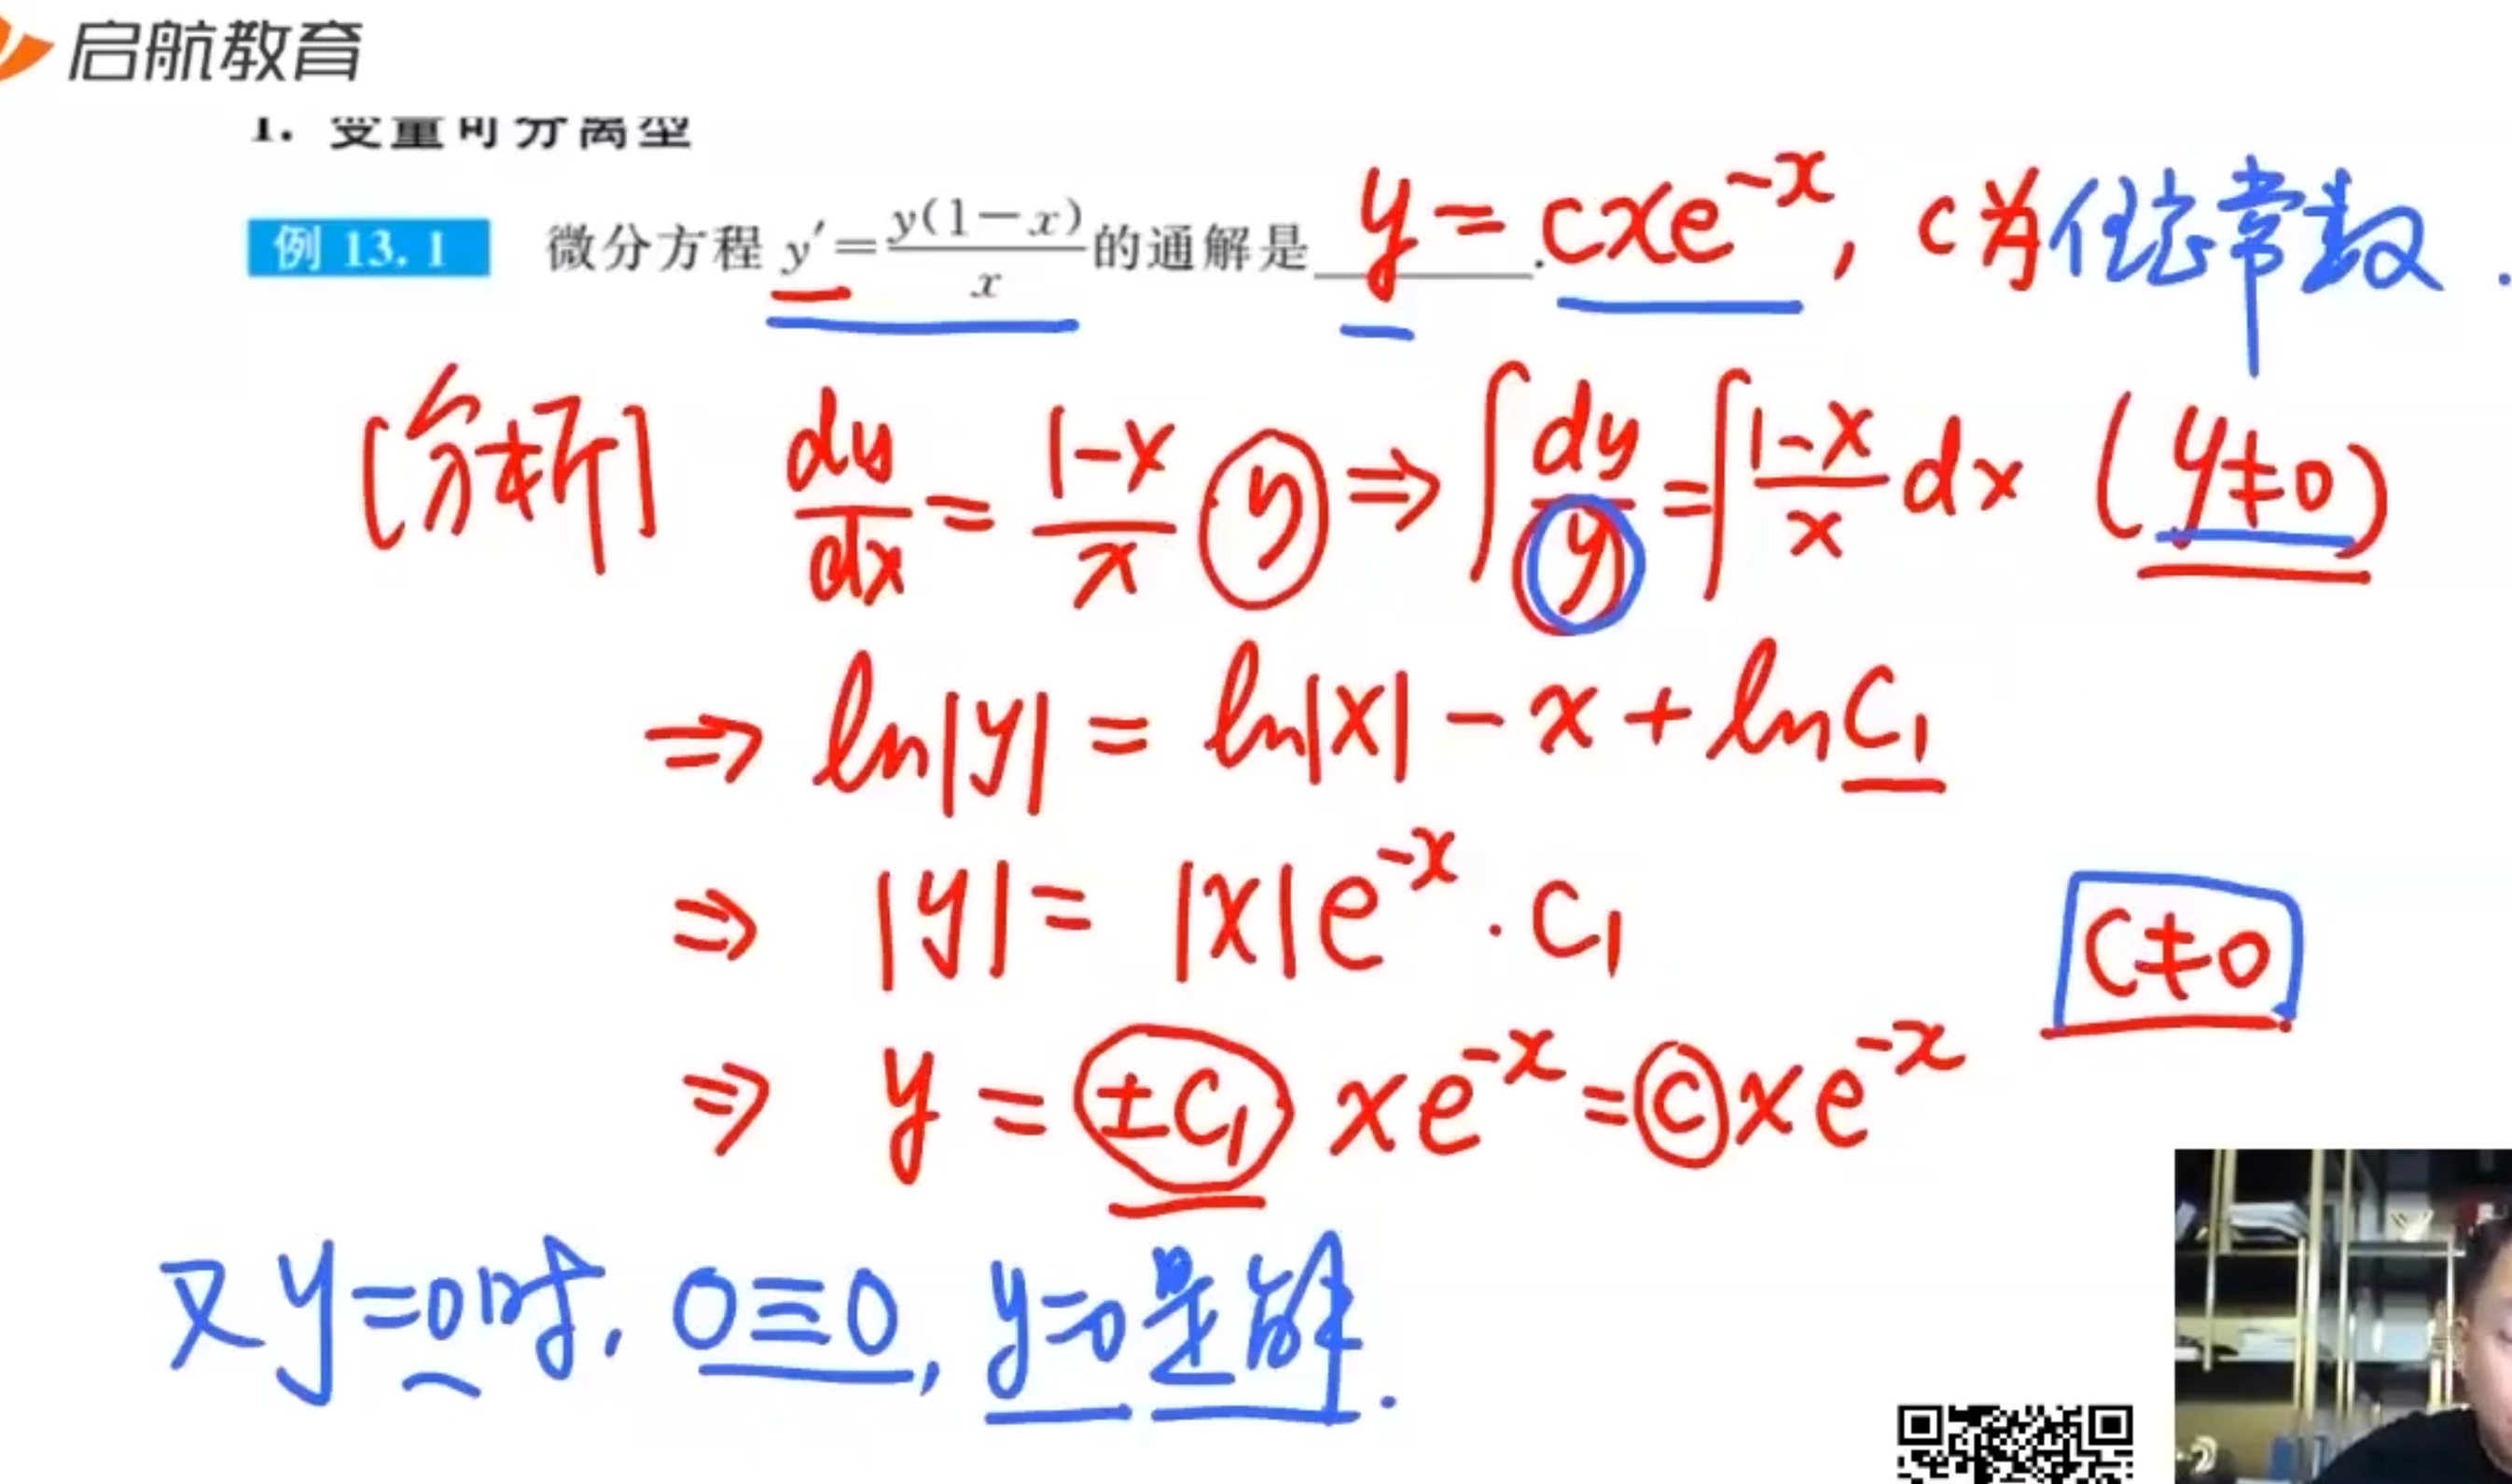 启航教育
1. 变量可分离型
例 13.1 微分方程 y′=y(1−x)/x 的通解是______. y = cxe^{-x}, c为任意常数.
[分析] dy/dx = (1-x)/x y ⇒ ∫dy/y = ∫(1-x)/x dx (y≠0)
⇒ ln|y| = ln|x| - x + lnC₁
⇒ |y| = |x|e^{-x} · C₁
C≠0
⇒ y = ±C₁ xe^{-x} = C xe^{-x}
又y=0时, 0≡0, y=0是解.